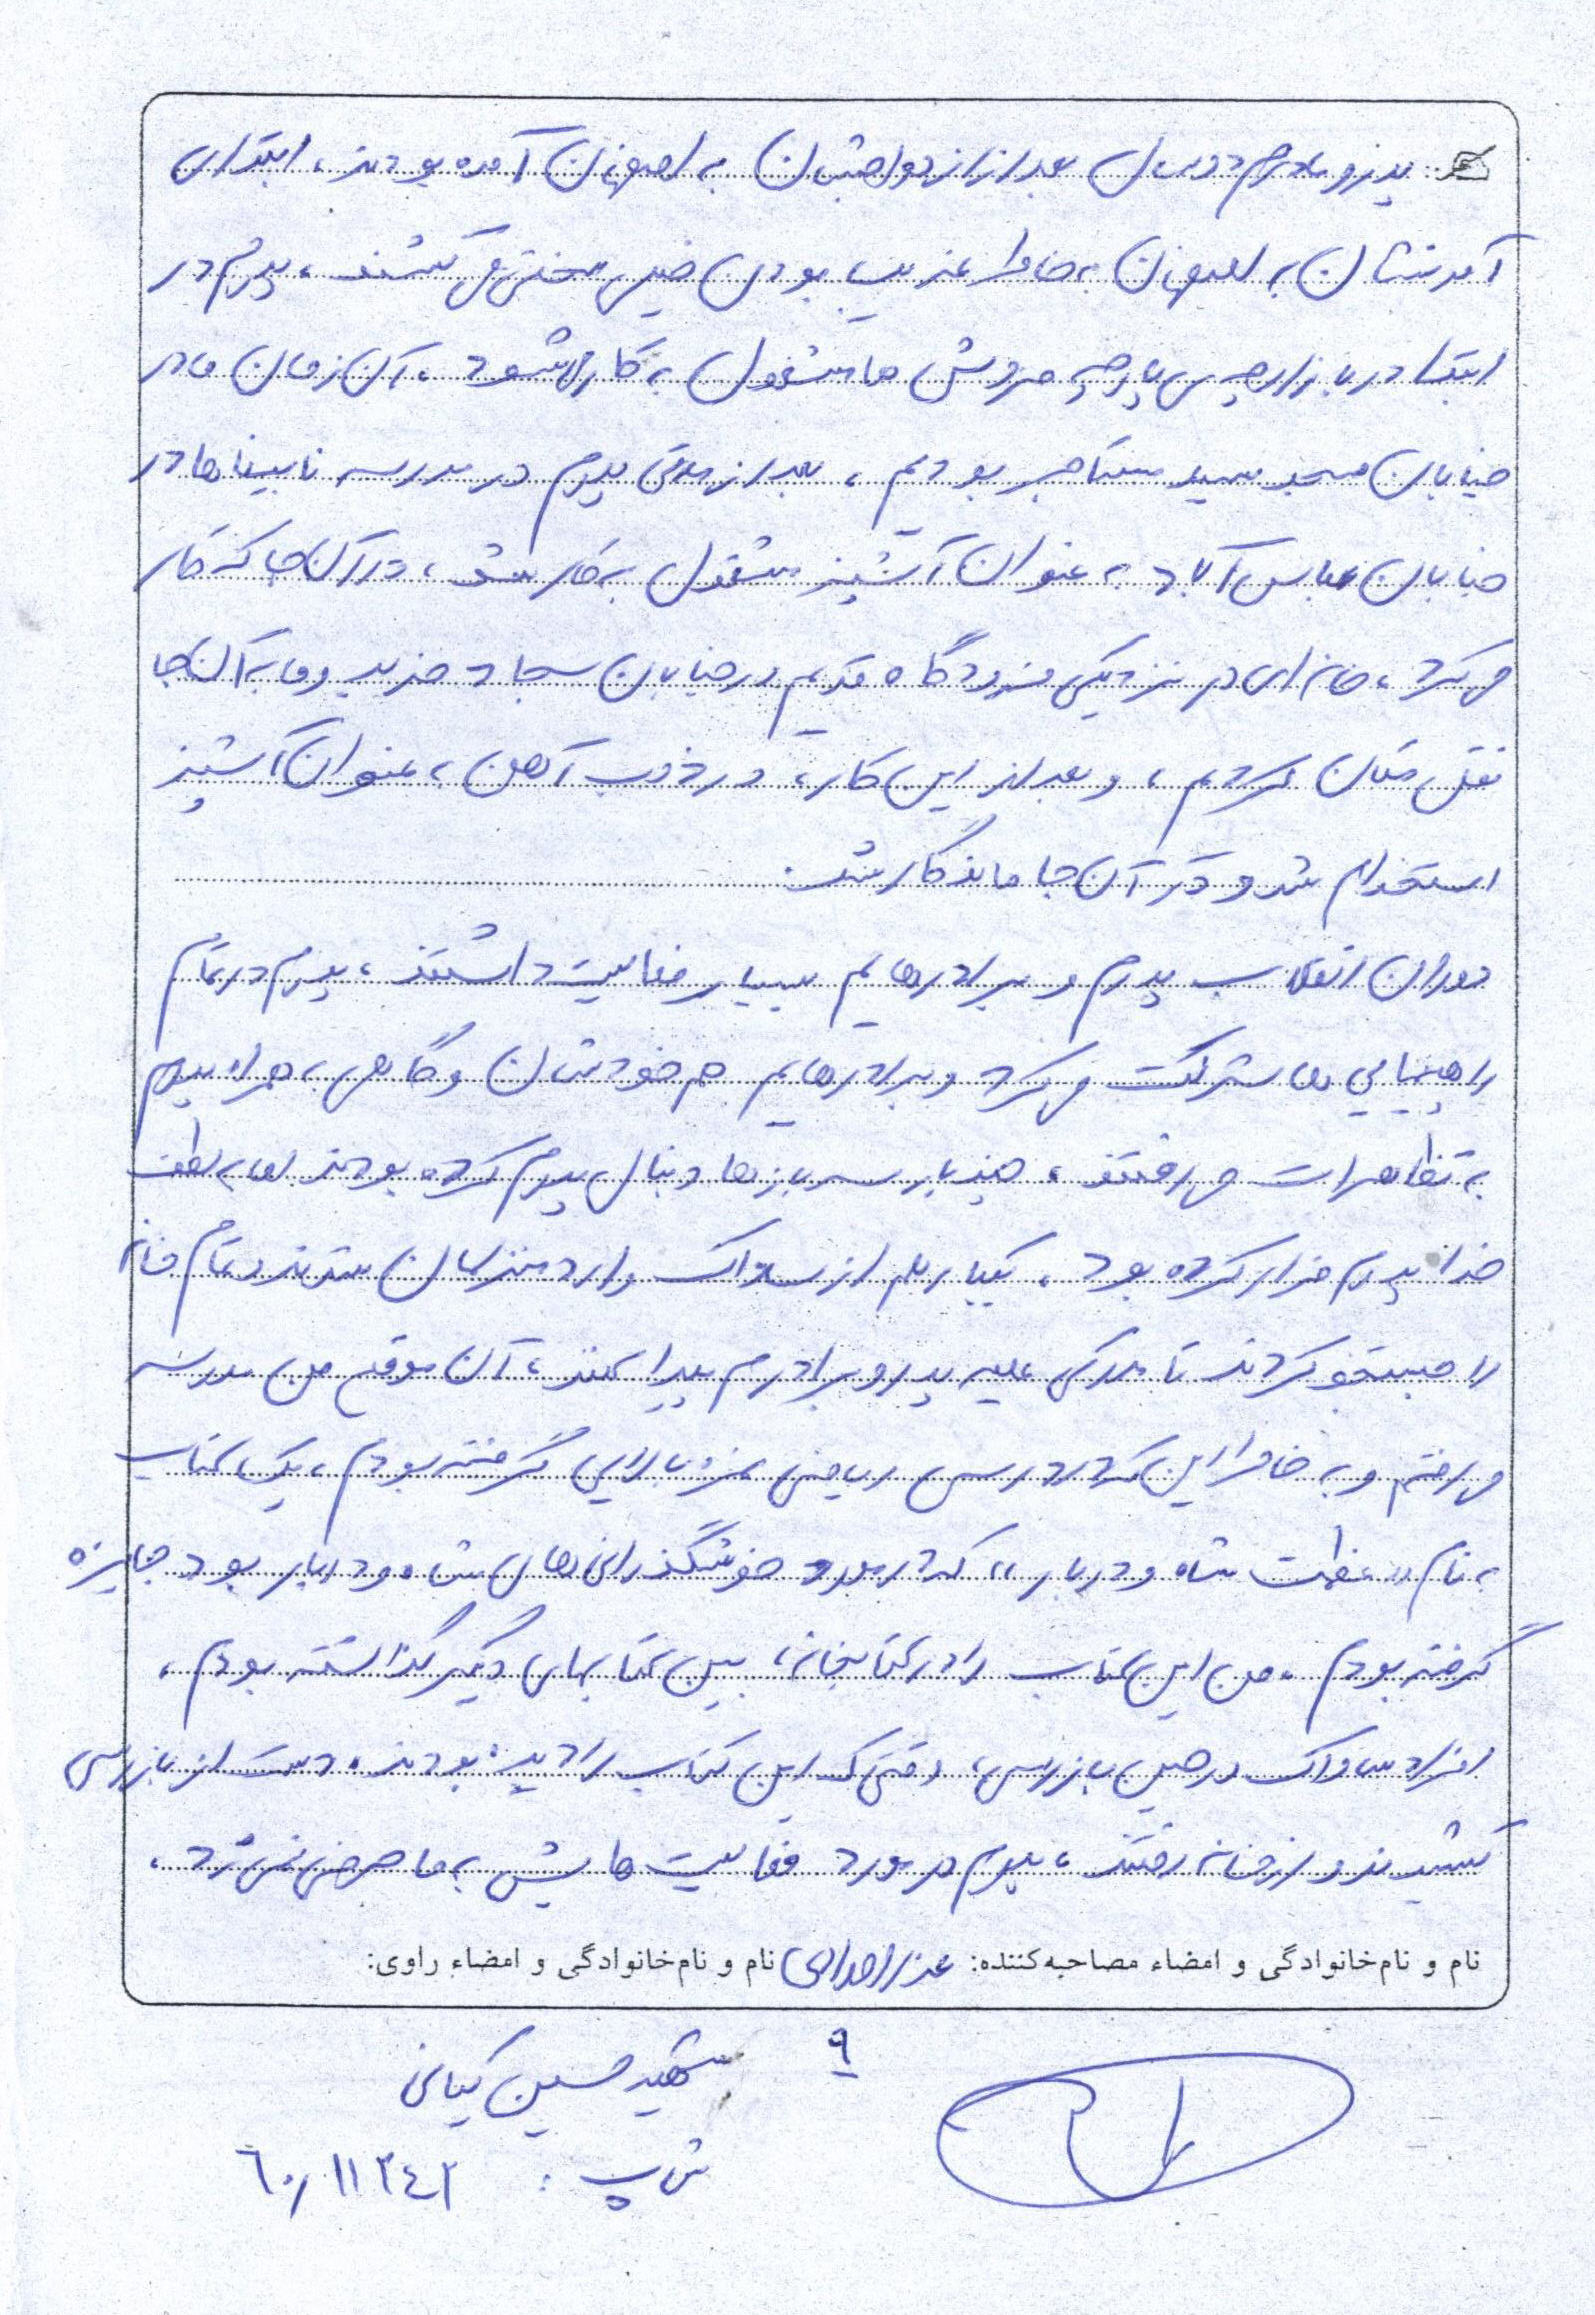 پدر و مادرم دو سال بعد از ازدواجشان به اصفهان آمده بودند، ابتدای
آمدنشان به اصفهان به خاطر غریب بودن خیلی سختی می‌کشند، پدرم در
ابتدا در بازارچه‌ی پارچه فروش ها مشغول به کار می‌شود، آن زمان ما در
خیابان مسجد سید مستأجر بودیم، بعد از مدتی پدرم در مدرسه نابیناها در
خیابان عباس آباد به عنوان آشپز مشغول به کار شد، در آن جا که کار
می‌کرد، خانه‌ای در نزدیکی فرودگاه قدیم در خیابان سجاد خرید و ما به آن جا
نقل مکان کردیم، و بعد از این کار، در ذوب آهن به عنوان آشپز
استخدام شد و در آن جا ماندگار شد.
دوران انقلاب پدرم و برادرهایم بسیار فعالیت داشتند، پدرم در تمام
راهپیمایی ها شرکت می‌کرد و برادرهایم هم خودشان و گاهی به همراه پدرم
به تظاهرات می‌رفتند، چند بار سربازها دنبال پدرم کرده بودند اما به لطف
خدا پدرم فرار کرده بود، یکبار هم از ساواک وارد منزلمان شدند و تمام خانه
را جستجو کردند تا مدرکی علیه پدر و برادرم پیدا کنند، آن موقع من مدرسه
می‌رفتم و به خاطر این که در درس ریاضی نمره بالایی گرفته بودم، یک کتاب
به نام «عظمت شاه و دربار» که در مورد خوشگذرانی‌های شاه و دربار بود جایزه
گرفته بودم. من این کتاب را در کتابخانه، بین کتابهای دیگر گذاشته بودم،
افراد ساواک در حین بازرسی، وقتی که این کتاب را دیده بودند، دست از بازرسی
کشیدند و از خانه رفتند، پدرم در مورد فعالیت هایش به ما حرفی نمی‌زد،
نام و نام‌خانوادگی و امضاء مصاحبه‌کننده: نام و نام‌خانوادگی و امضاء راوی:
۹
شهید حسین کیانی
ش پ : ٦٠١١٢٤٢